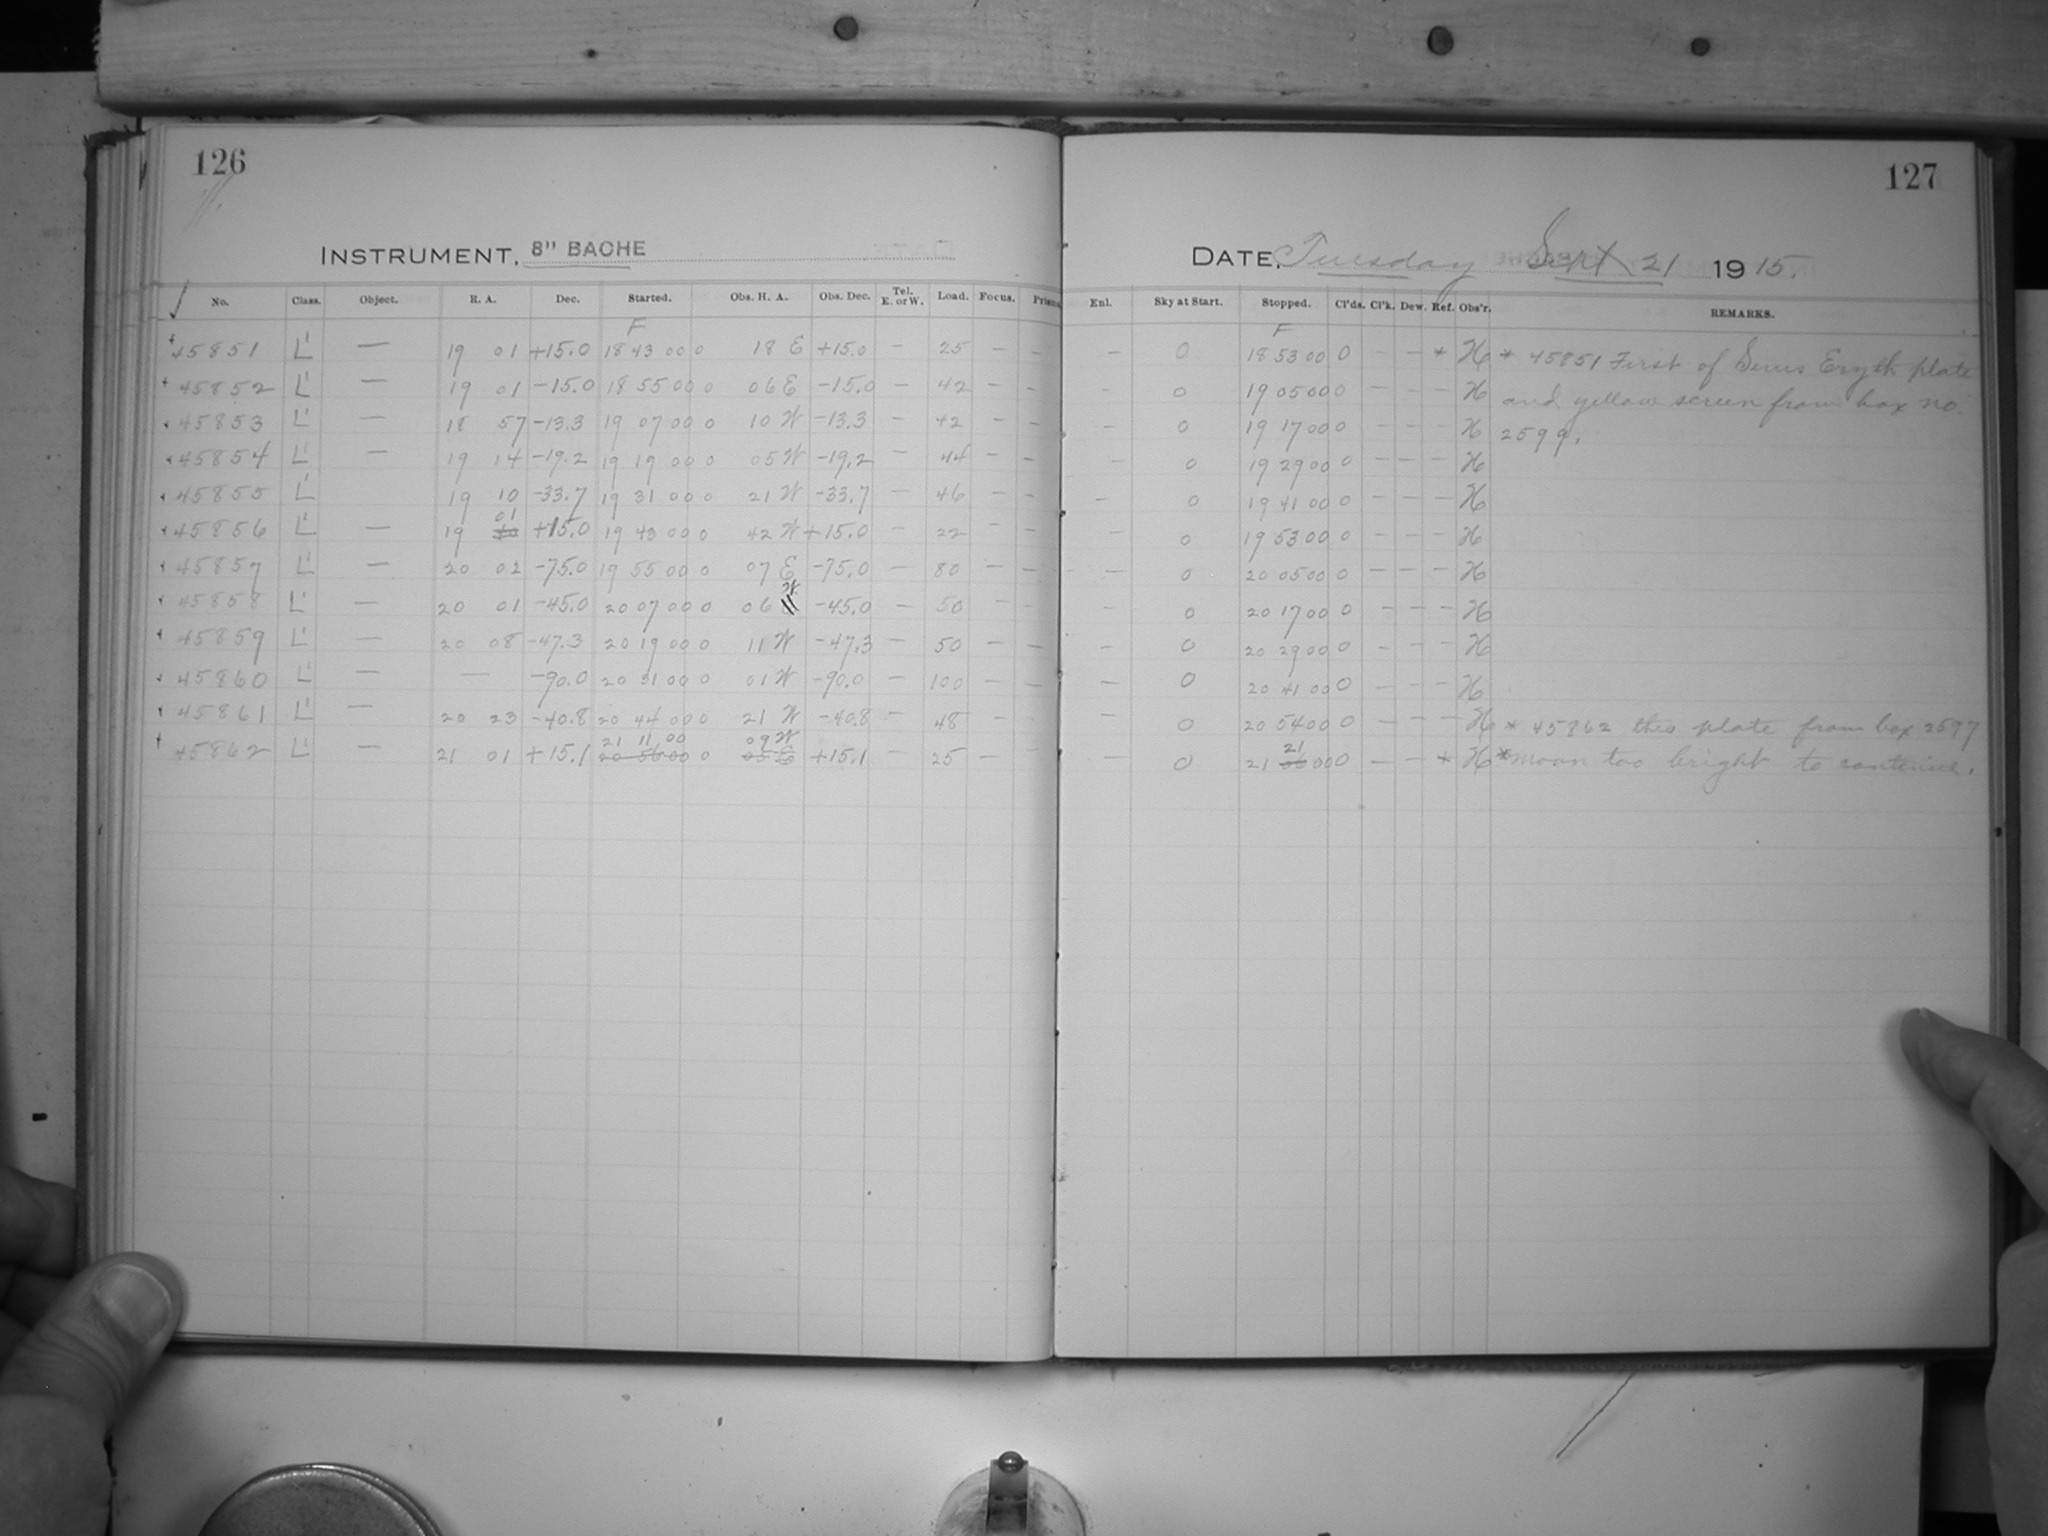 126
INSTRUMENT, 8" BACHE
No. Class. Object. R. A. Dec. Started. Obs. H. A. Obs. Dec. Tel. E. or W. Load. Focus. Prism
F
45851 L' — 19 01 +15.0 18 43 00 0 18 E +15.0 — 25 — —
45852 L' — 19 01 -15.0 18 55 00 0 06 E -15.0 — 42 — —
45853 L' — 18 57 -13.3 19 07 00 0 10 W -13.3 — 42 — —
45854 L' — 19 14 -19.2 19 19 00 0 05 W -19.2 — 44 — —
45855 L' 19 10 -33.7 19 31 00 0 21 W -33.7 — 46 — —
45856 L' — 19 01 +15.0 19 43 00 0 42 W +15.0 — 22 — —
45857 L' — 20 02 -75.0 19 55 00 0 07 E -75.0 — 80 — —
45858 L' — 20 01 -45.0 20 07 00 0 06 W -45.0 — 50 — —
45859 L' — 20 08 -47.3 20 19 00 0 11 W -47.3 — 50 — —
45860 L' — — -90.0 20 31 00 0 01 W -90.0 — 100 — —
45861 L' — 20 23 -40.8 20 44 00 0 21 W -40.8 — 48 — —
21 11 00 09 W
45862 L' — 21 01 +15.1 20 56 00 0 05 E +15.1 — 25 —
127
DATE, Tuesday Sept 21 1915.
Enl. Sky at Start. Stopped. Cl'ds. Cl'k. Dew. Ref. Obs'r. REMARKS.
F
— 0 18 53 00 0 — — * H * 45851 First of Series Eryth plate
— 0 19 05 00 0 — — — H and yellow screen from box no.
— 0 19 17 00 0 — — — H 2599.
— 0 19 29 00 0 — — — H
— 0 19 41 00 0 — — — H
— 0 19 53 00 0 — — — H
— 0 20 05 00 0 — — — H
— 0 20 17 00 0 — — — H
— 0 20 29 00 0 — — — H
— 0 20 41 00 0 — — — H
— 0 20 54 00 0 — — — H * 45862 this plate from box 2597
21
— 0 21 06 00 0 — — * H * moon too bright to continue.